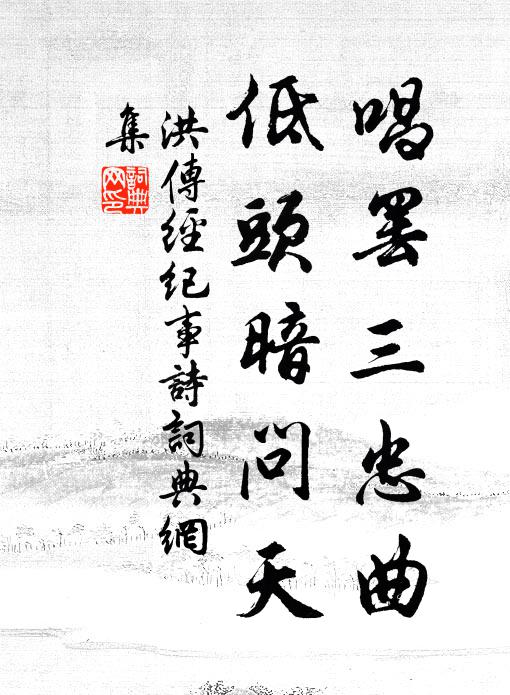 唱罷三忠曲
低頭暗問天
洪傳經紀事詩詞典網
集
詞典網印